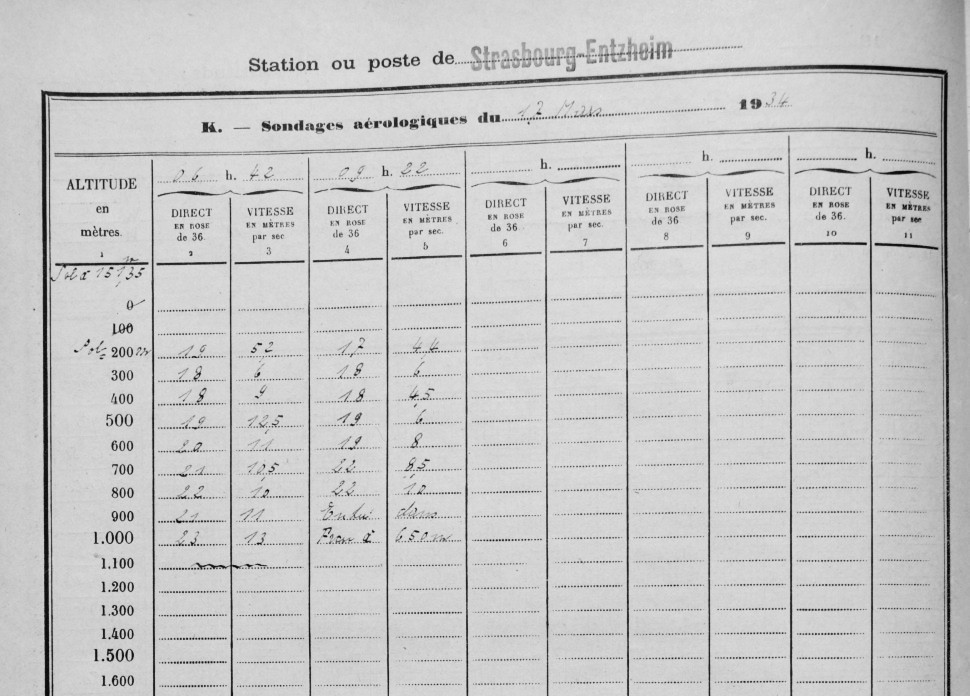 Station ou poste de Strasbourg-Entzheim
K. — Sondages aérologiques du 17 Mars 1934
ALTITUDE en mètres. 06 h. 42 09 h. 22 h. h. h.
DIRECT EN ROSE de 36. VITESSE EN MÈTRES par sec DIRECT EN ROSE de 36 VITESSE EN MÈTRES par sec. DIRECT EN ROSE de 36 VITESSE EN MÈTRES par sec. DIRECT EN ROSE de 36 VITESSE EN MÈTRES par sec. DIRECT EN ROSE de 36 VITESSE EN MÈTRES par sec.
1 2 3 4 5 6 7 8 9 10 11
Sol à 151,35
0
100
200 m 19 52 17 44
300 18 6 18 6
400 18 9 18 4,5
500 19 12,5 19 6
600 20 11 19 8
700 21 10,5 22 8,5
800 22 10 22 10
900 21 11 dans
1.000 23 13 à 650 m
1.100
1.200
1.300
1.400
1.500
1.600